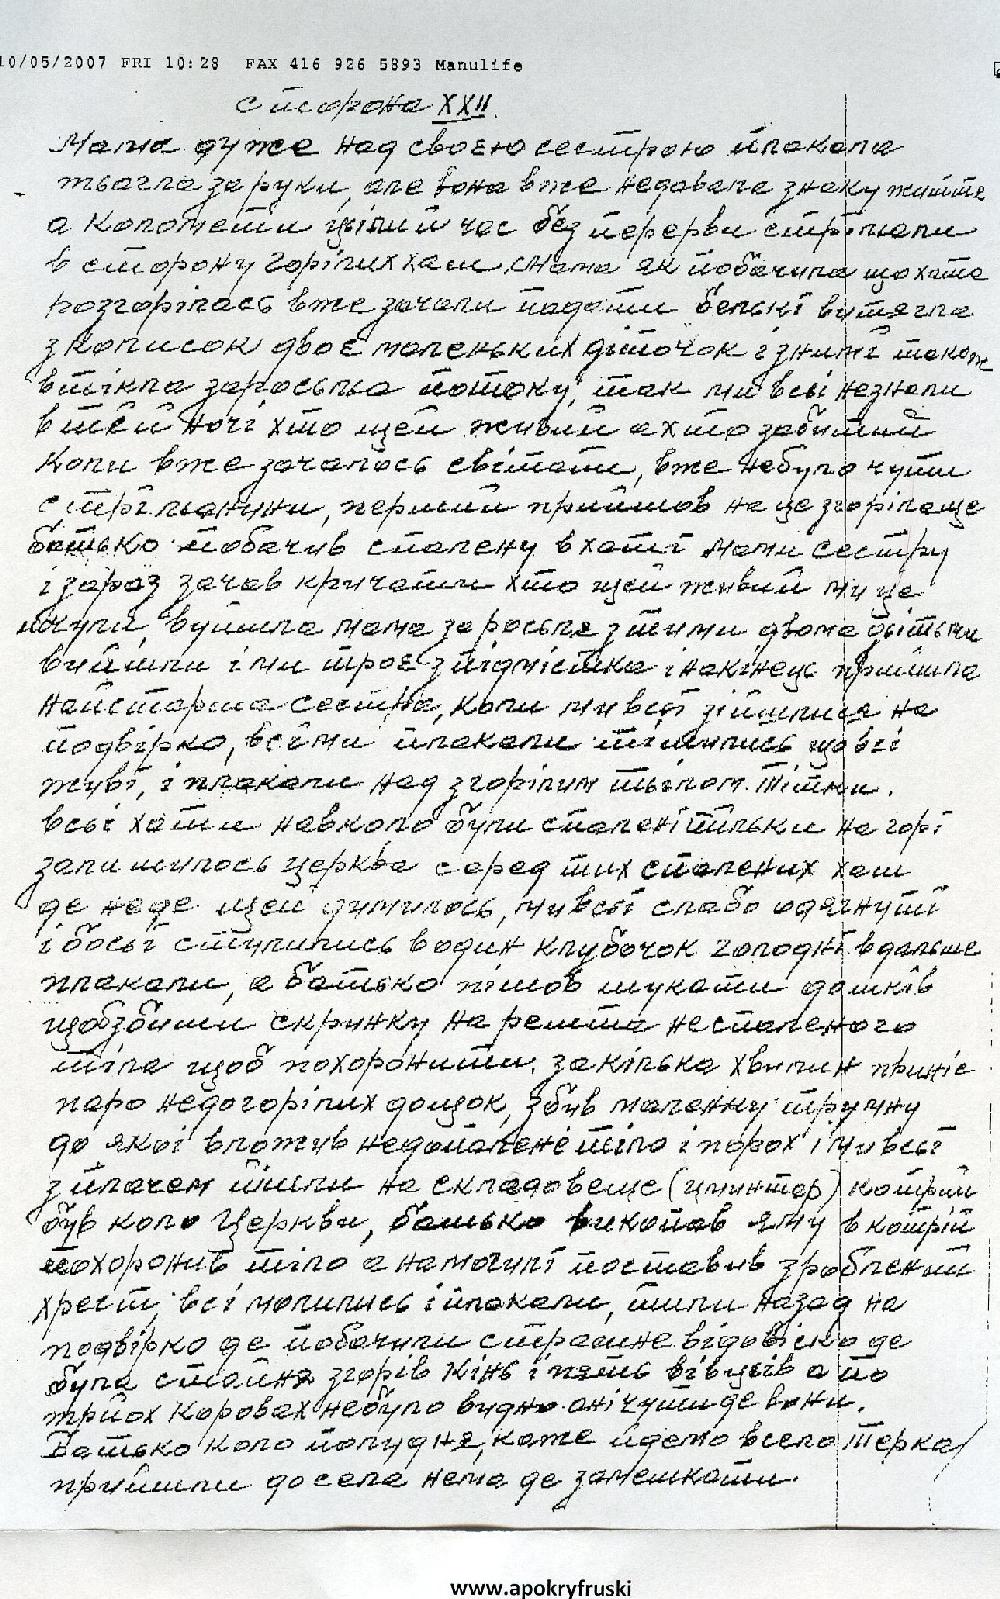 10/05/2007 FRI 10:28 FAX 416 926 5893 Manulife
сторона XXII.
Мама дуже над своєю сестрою плакала
тьагла за руки, але вона вже недавала знаку життє
а Кольомети цілий час без перерви стріляли
в сторону горілих хат, мама як побачила що хата
розгорілась вже зачали падати бельки витягла
з колисок двоє маленьких діточок і з ними також
втікла за росьтьа потоку, так ми всі незнали
в тей ночі хто щей живий а хто забитий
Коли вже зачалось світати, вже небуло чути
стрілянини, перший прийшов на це згоріляще
батько побачив спалену в хаті мами сестру
і зараз зачав кричати хто щей живий ми це
почули, вуйшла мама за росьлє з тими двома дітьми
вуйшли і ми троє з підмістка і накінец прийшла
найстарша сестра, коли ми всі зійшлися на
подвірко, всі ми плакали тішились що всі
живі, і плакали над згорілим тьілом тітки.
всьі хати навколо були спалені тільки на горі
залишилось церква серед тих спалених хат
де неде щей думилось, ми всьі слабо одягнуті
і босьі стулились в один клубочок голодні вдальше
плакали, а батько пішов шукати дошків
щоб збити скринку на решта неспаленого
тіла щоб похоронити. за кілька хвилин приніс
паро недогорілих дощок, збув маленку тручну
до якоі вложив недопалене тіло і порох і ми всьі
з плачем пішли на складовеще (цминтар) котрий
був коло Церкви, батько викопав яму в котрій
похоронив тіло а на могилі поставив зроблений
хрест, всі молились і плакали, пішли назад на
подвірко де побачили страшне відовіско де
була стайня згорів Кінь і пять вівців а по
трйох Коровах небуло видно анічути де вони.
Батько коло полудня, каже идемо в село Терка/
прийшли до села нема де замешкати.
www.apokryfruski